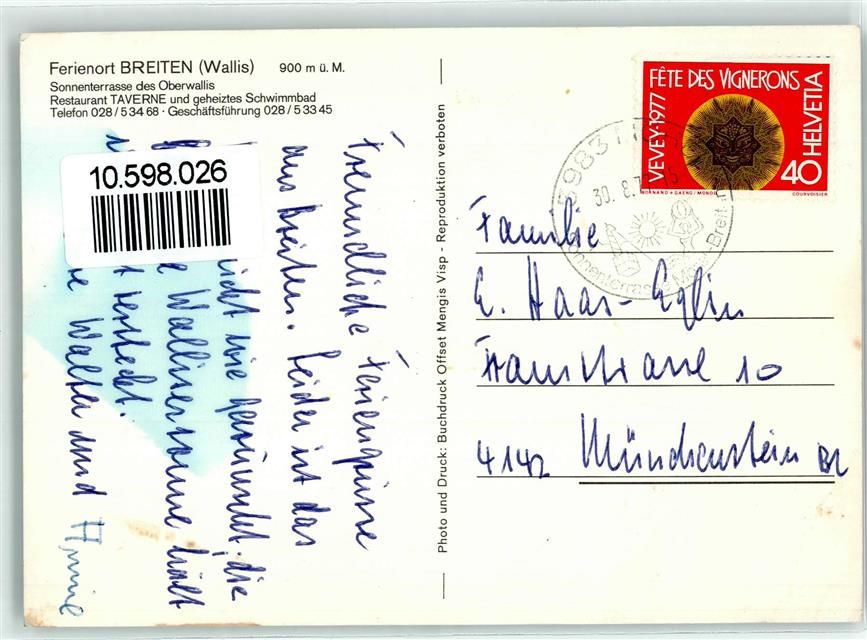 Ferienort BREITEN (Wallis) 900 m ü. M.
Sonnenterrasse des Oberwallis
Restaurant TAVERNE und geheiztes Schwimmbad
Telefon 028 / 5 34 68 · Geschäftsführung 028 / 5 33 45
10.598.026
Freundliche Feriengrüsse
aus Breiten. Leider ist das
nicht wie gewünscht, die
Wallisersonne hält
versteckt.
Walter und Annie
Photo und Druck: Buchdruck Offset Mengis Visp - Reproduktion verboten
FÊTE DES VIGNERONS
VEVEY-1977
HELVETIA
40
BORNAND + GAENG / MONOD
COURVOISIER
3983
30. 8. 7
Sonnenterrasse
Breiten
Familie
E. Haas-Eglin
strasse 10
4142 Münchenstein BL